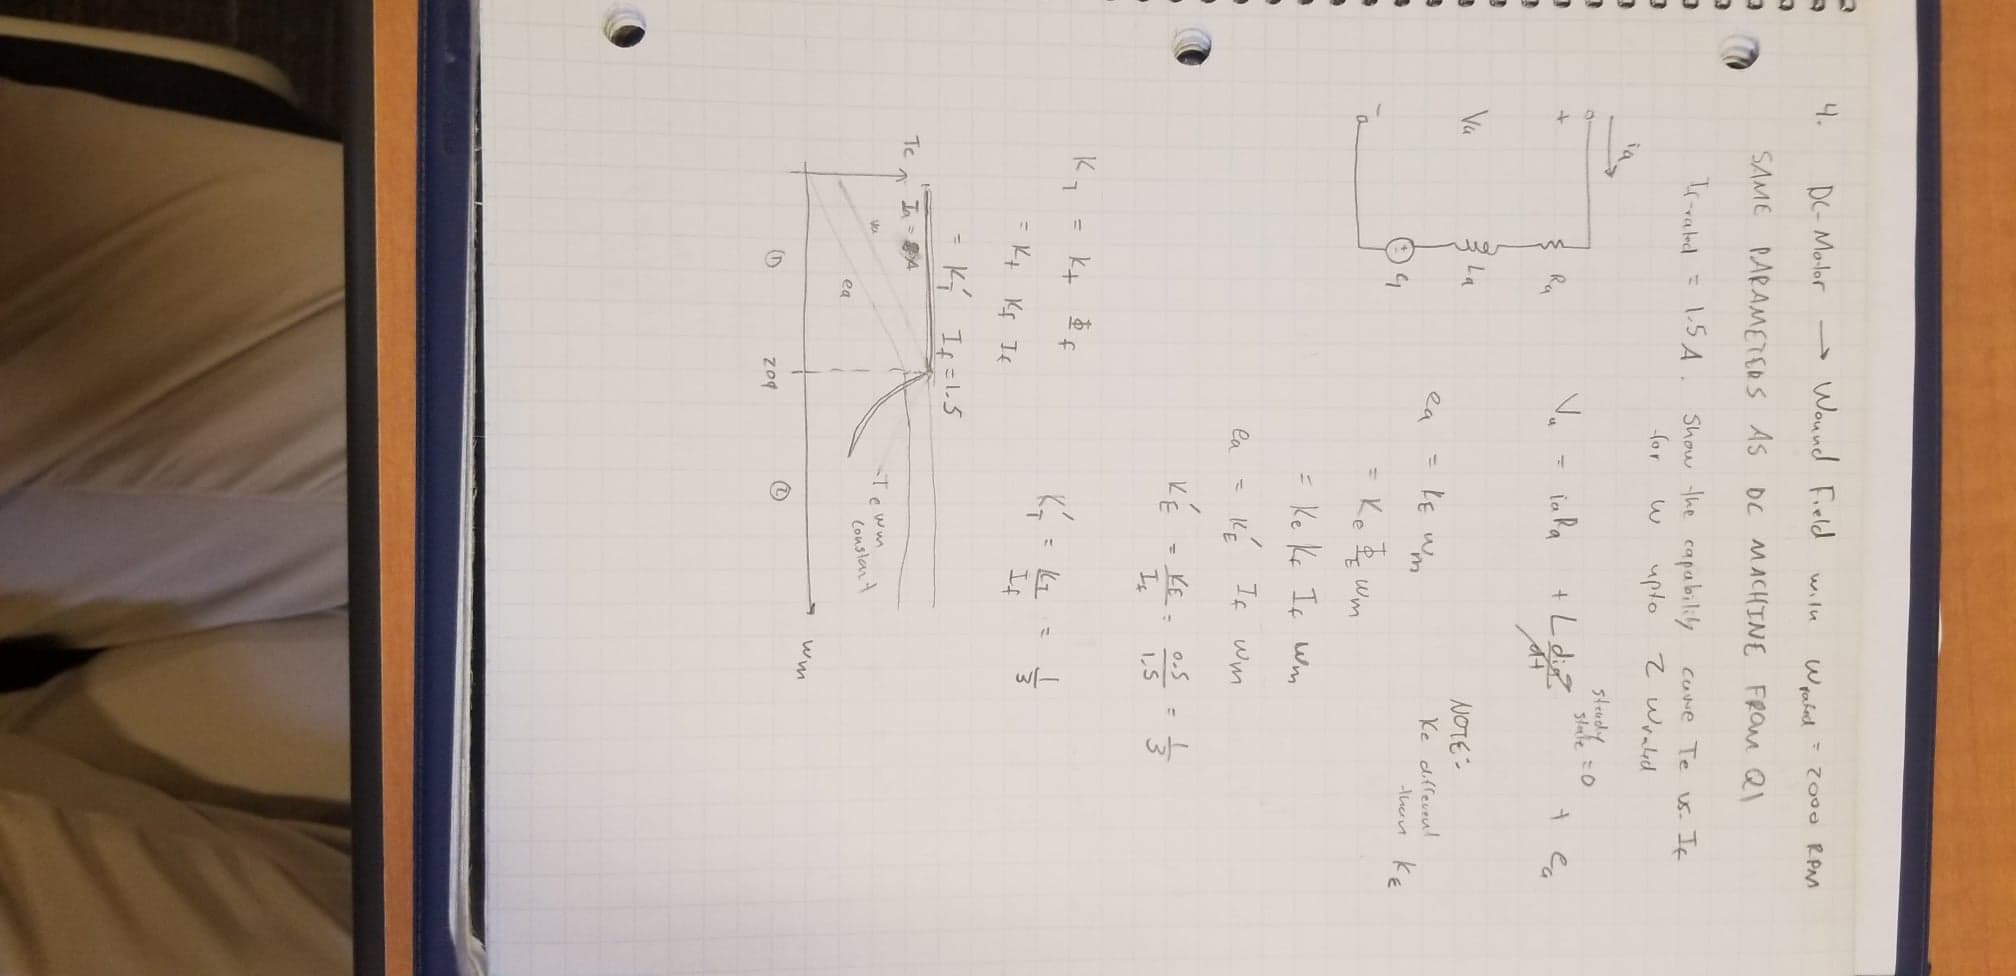 4. DC-Motor → Wound Field with Wrated = 2000 RPM
SAME PARAMETERS AS DC MACHINE FROM Q1
If-rated = 1.5A. Show the capability curve Te vs. If
for w upto 2 Wrated
ia
+
Va
-
Ra
La
Va = iaRa + L dia/dt + ea
steady state = 0
NOTE:
Ke different
than KE
ea = KE wm
= Ke ΦE wm
= Ke Kf If wm
ea = KE' If wm
KE' = KE/If = 0.5/1.5 = 1/3
KT = Kt Φf
= Kt Kf If
= KT' If = 1.5
KT' = KT/If = 1/3
Te
Ia = A
va
ea
Te wm
constant
wm
① 209 ②